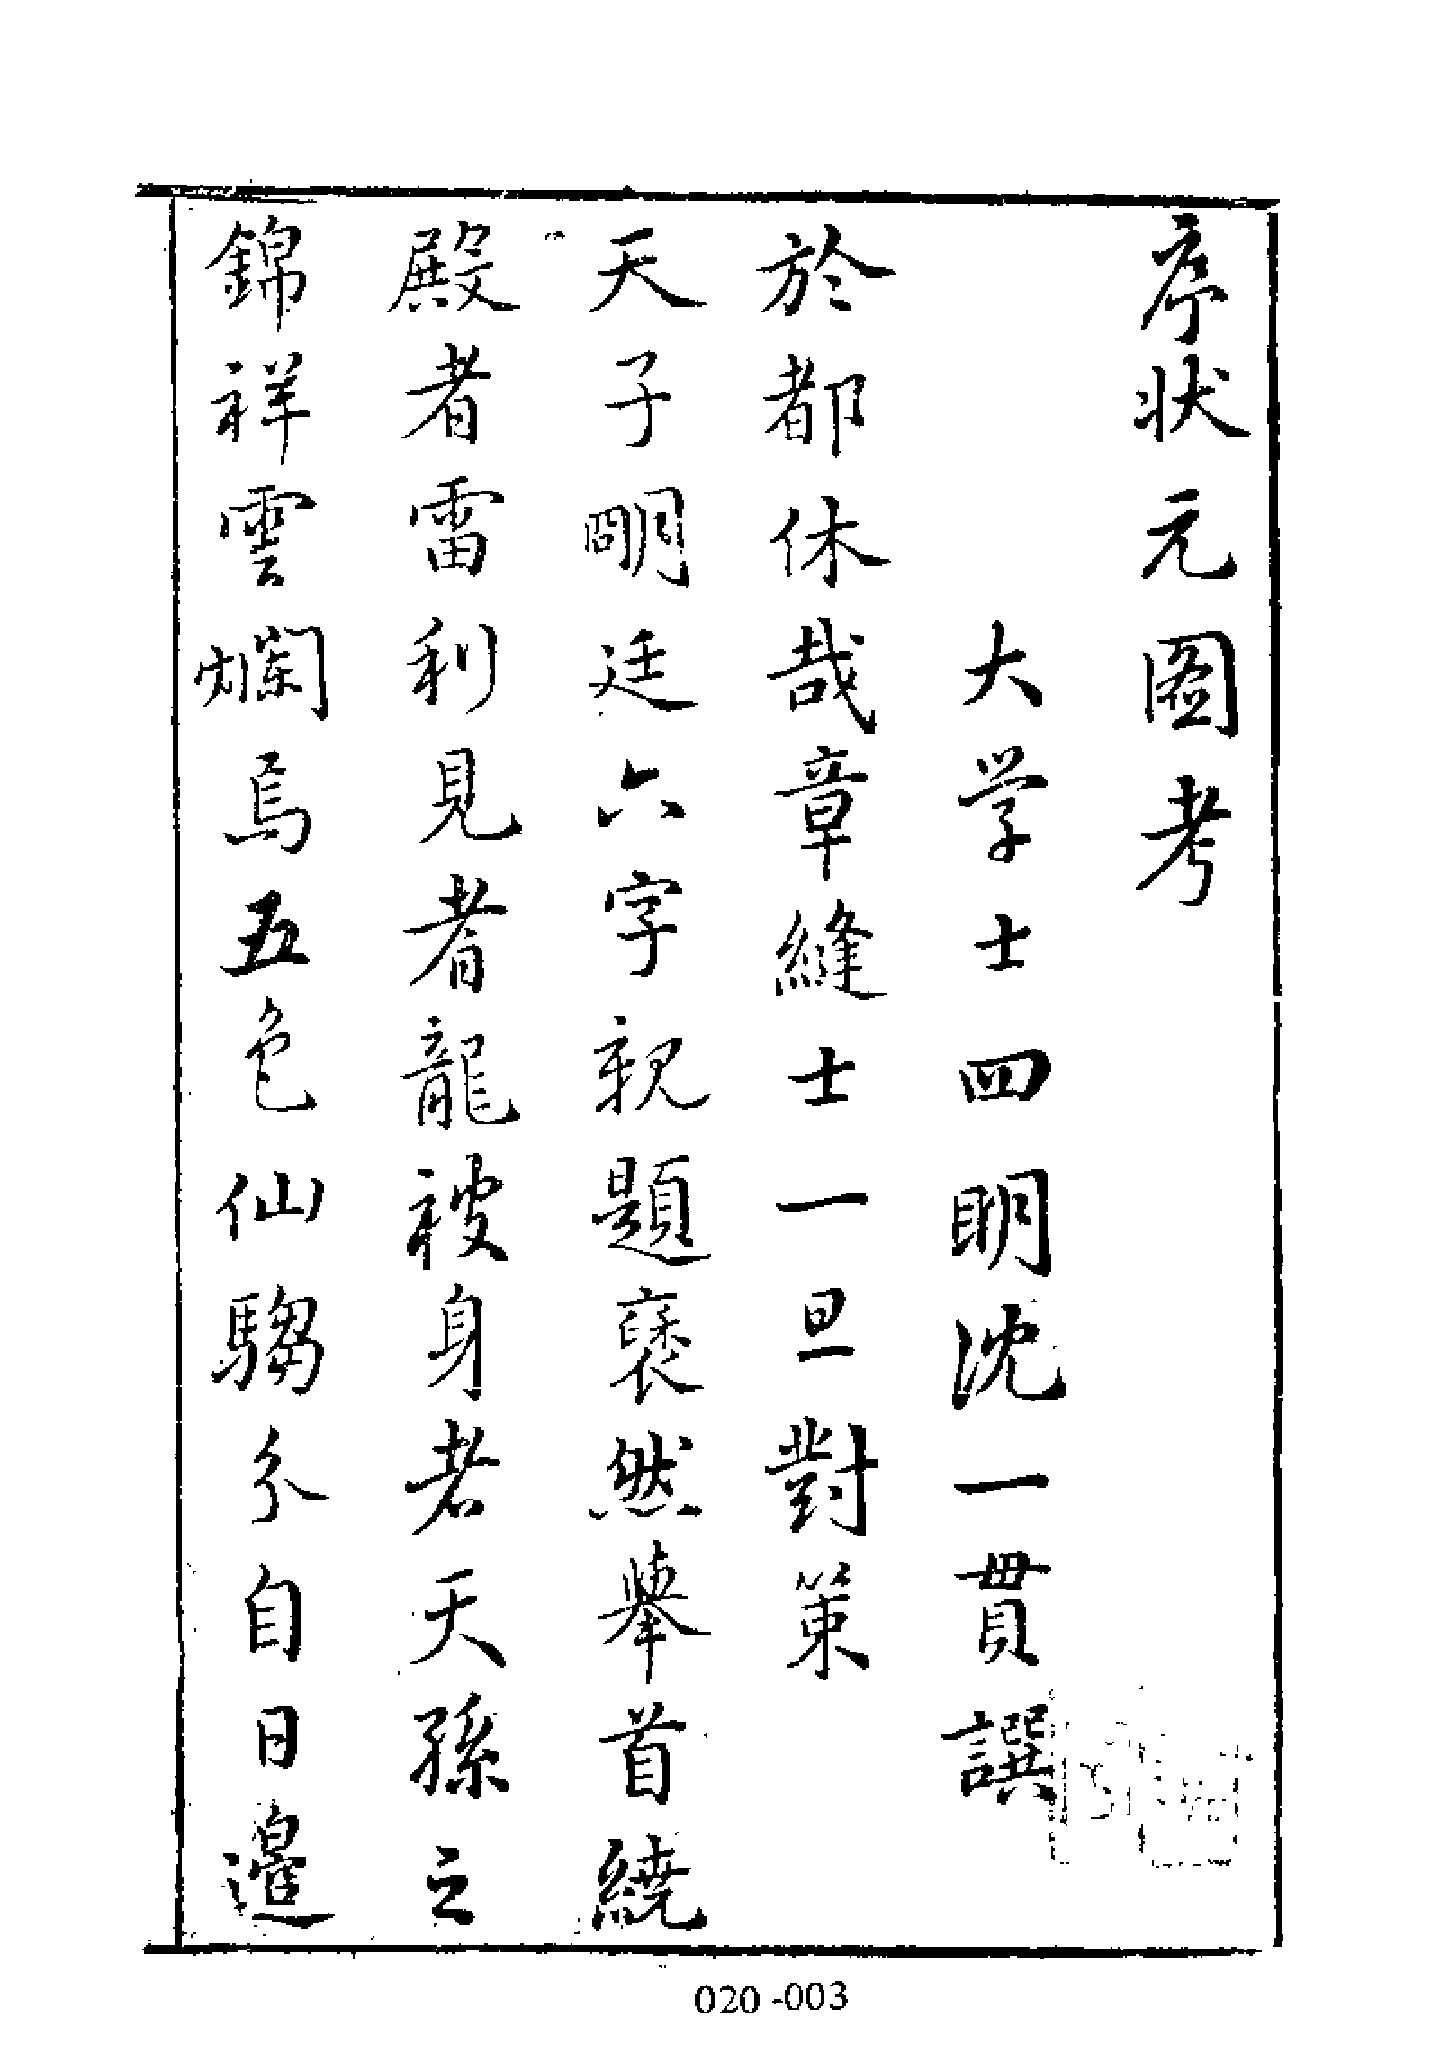 序状元圖考
大学士四明沈一貫譔
於都休哉章縫士一旦對策
天子明廷六字親題褎然舉首繞
殿者雷利見者龍被身者天孫之
錦祥雲爛焉五色仙騶分自日邊
020-003